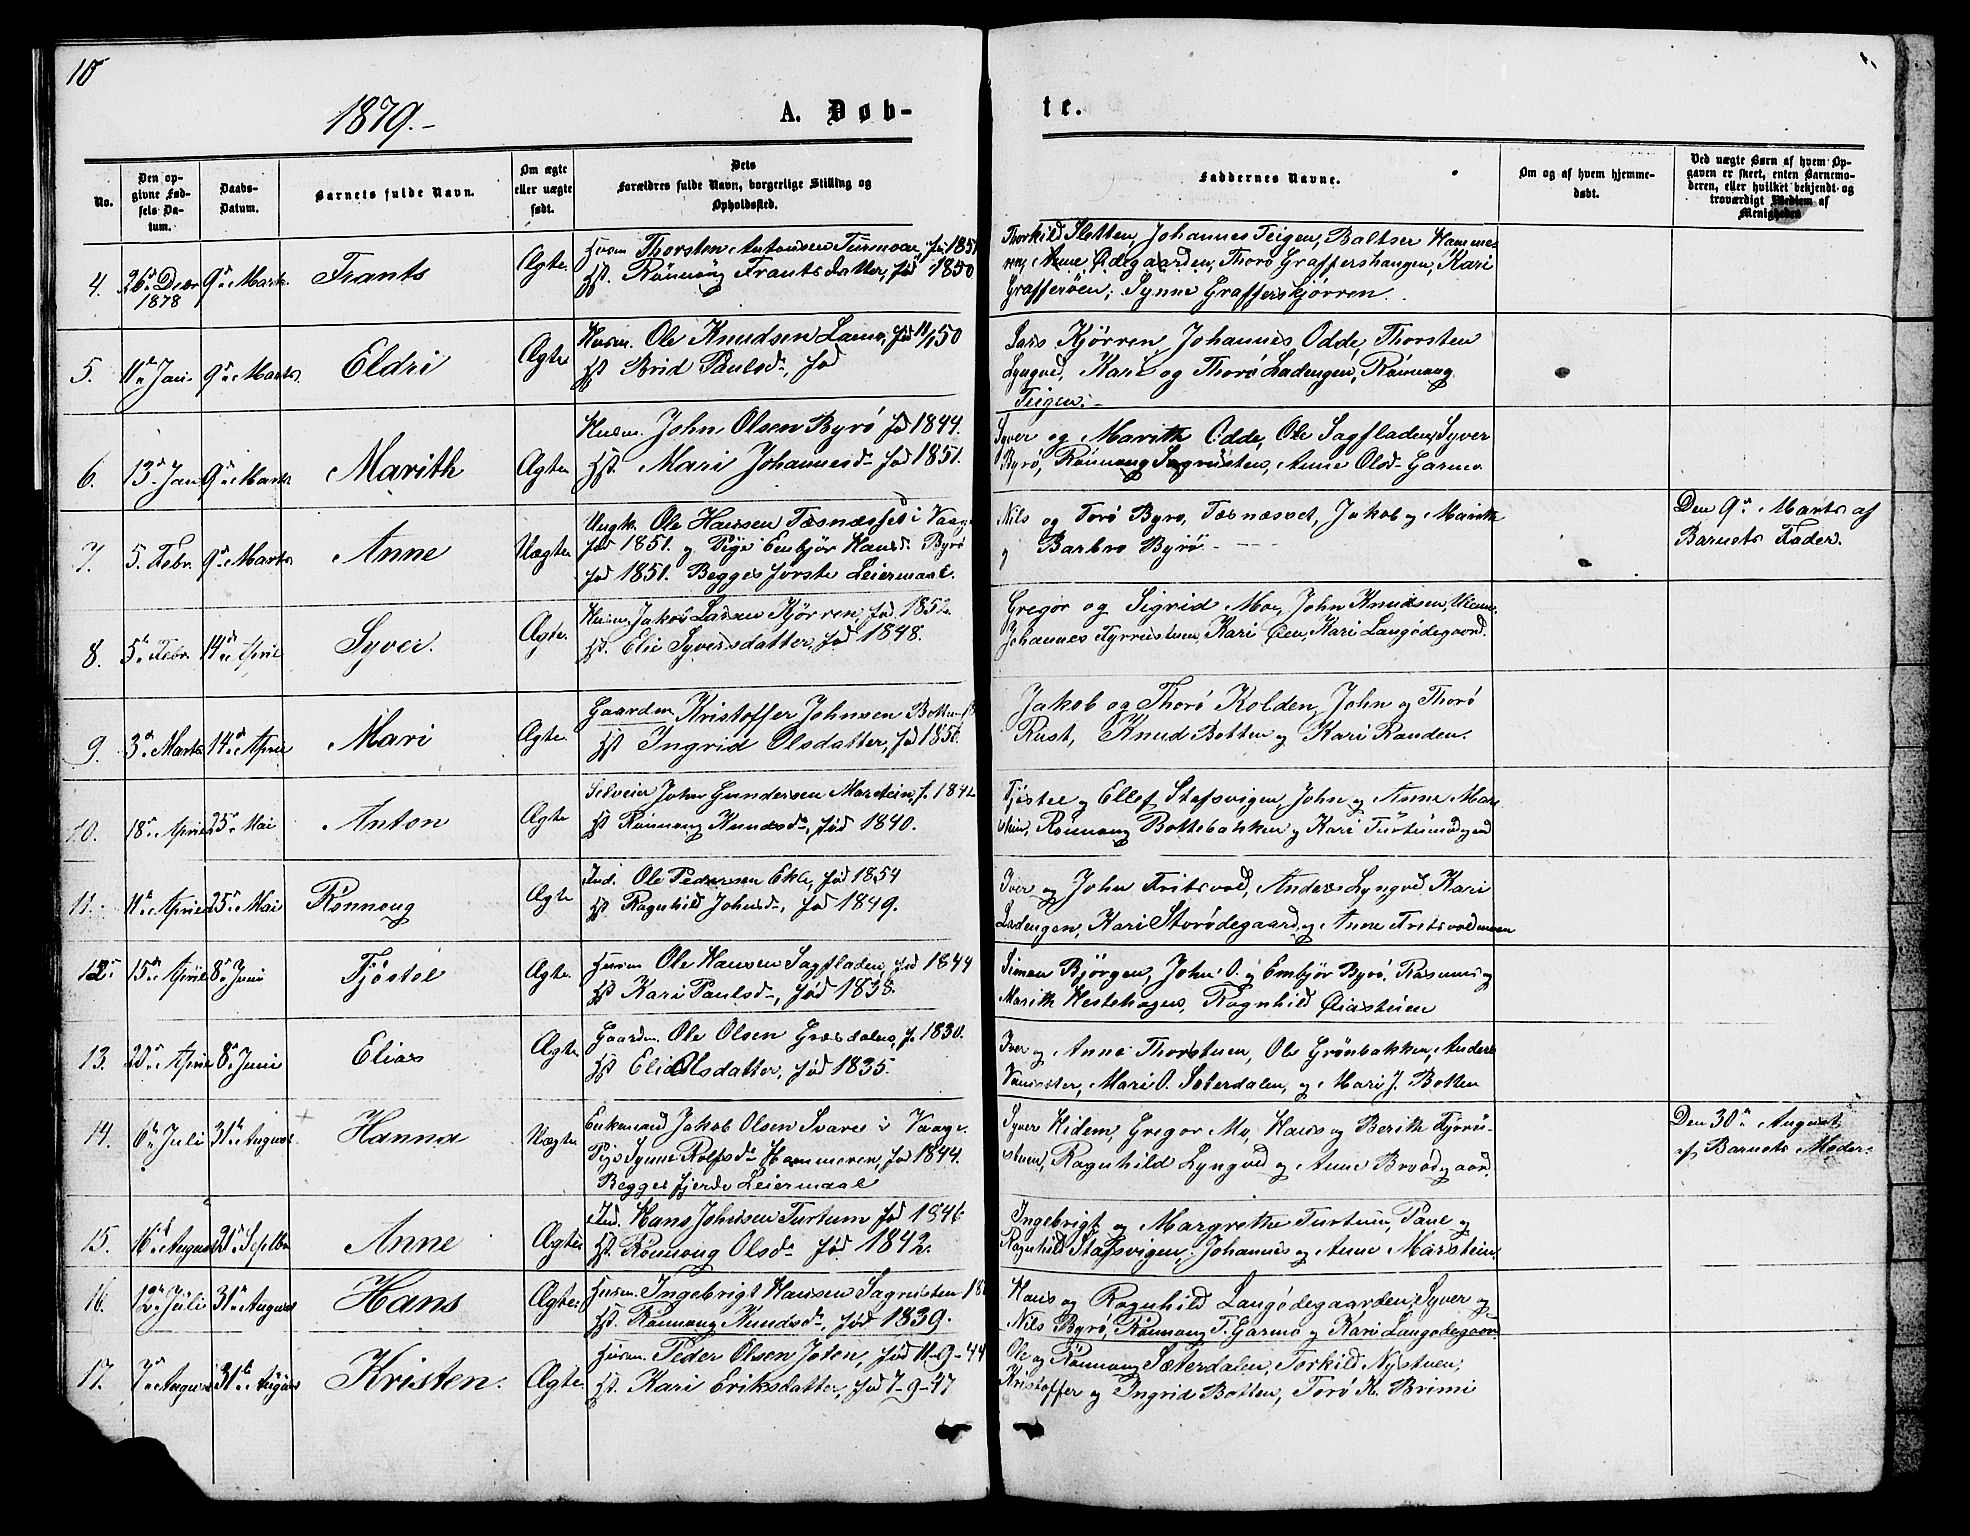 10
1879.-
A. Døb-
te.
No.
Den op-
givne Fød-
sels Da-
tum.
Daabs-
Datum.
Barnets fulde Navn.
Om ægte
eller uægte
født.
Dets
Forældres fulde Navn, borgerlige Stilling og
Opholdssted.
Faddernes Navne.
Om og af hvem hjemme-
døbt.
Ved uægte Børn af hvem Op-
gaven er skeet, enten Barnemo-
deren, eller hvilket bekjendt og
troværdigt Medlem af
Menigheden
4. 26de Decbr 1878 9de Marts Frants Ægte.
Husm Thorsten Antonsen født 185
Hst. Rønnoug Frantsdatter, født 1850
Thorkild Sletten, Johannes Teigen, Baltser Hamme-
ren, Anne Ødegaarden, Thorø Graffershaugen, Kari
Grafferøen, Synne Grafferskjørren.
5. 11te Jan. 9de Marts. Eldri Ægte
Husm. Ole Knudsen født 11/1 50
Hst Brid Paulsd., fød
Lars Kjørren, Johannes Odde, Thorsten
Lyngved, Kari og Thorø Ladengen, Rønnaug
Teigen.-
6. 13de Jan 9de Marts Marith Ægte
Husm. John Olsen Byrø fød 1844.
Hst. Mari Johannesd. fød 1851.
Syver og Marith Odde, Ole Sagfladen, Syver
Byrø, Rønnaug Sagrusten, Anne Olsd. Garmo.
7. 5. Febr. 9de Marts Anne Uægte
Ungk. Ole Hansen Tæsnæsset i Vaage
fød 1851. og Pige Embjør Hansd. Byrø
fød 1851. Begges første Leiermaal.
Nils og Torø Byrø, Tæsnæsset, Jakob og Marith
og Barbro Byrø
Den 9de Marts af
Barnets Fader.
8. 5te Febr. 14de April Syver. Ægte.
Husm. Jakob Larsen Kjørren, fød. 1852.
Hst. Elie Syversdatter, fød 1848.
Gregor og Sigrid Moe, John Knudsen,
Johannes Kari Øien, Kari Langødegaard.
9. 3de Marts 14de April Mari Ægte.
Gaardm. Kristoffer Johnsen Botten
Hst Ingrid Olsdatter, fød 1856.
Jakob og Thorø Kolden, John og Thorø
Rust, Knud Botten og Kari Randen.
10. 18de April 25de Mai Anton Ægte
Selveier John Gundersen Marstein, f. 1842
Hst Rønnoug Knudsd., fød 1840.
Tjøstel og Ellef Stafsvigen, John og Anne Mar-
stein, Rønnoug Bottebakken og Kari
11. 11te April 25de Mai Rønnoug Ægte
Ind. Ole Pedersen Ekle, fød 1854
Hst Ragnhild Johnsd., fød 1849.
Iver og John Fritsvold, Anders Lyngved, Kari
Ladengen, Kari Storødegaard og Anne Fritsvoldmoen
12. 15de April 8de Juni Tjøstel Ægte.
Husm Ole Hansen Sagfladen, fød 1844
Hst Kari Paulsd., fød 1838.
Simen Bjørgen, John O. og Embjør Byrø, Rasmus og
Marith Vestehagen, Ragnhild Øiastuen
13. 20de April 8de Juni Elias Ægte
Gaardm. Ole Olsen f. 1830.
Hst Elie Olsdatter, fød 1835.
Iver og Anne Thorstuen, Ole Grønbakken, Anders
Mari O. Sæterdalen, og Mari J. Botten
14. 6te Juli 31te August Hanna Uægte
Enkemand Jakob Olsen Svare i Vaage.
Pige Synne Rolfsd. Hammeren, fød 1844.
Begges fjerde Leiermaal
Syver Hidem, Gregor Mo, Hans og Berith
Ragnhild Lyngved og Anne
Den 30te August
af Barnets Moder.
15. 16de August 21de Septbr Anne Ægte
Ind. Hans Johnsen Turtum fød 1846
Hst. Rønnoug Olsd. fød 1842.
Ingebrigt og Margrethe Turtum, Paul og
Ragnhild Stafsvigen, Johannes og Anne Marstein.
16. 12te Juli 31te August Hans Ægte
Husm. Ingebrigt Hansen Sagrusten 18
Hst. Rønnoug Knudsd., fød 1839.
Hans og Ragnhild Langødegaarden, Syver og
Nils Byrø, Rønnoug T. Garmo og Kari Langødegaard
17. 7de August 31te August Kristen. Ægte
Husm. Peder Olsen Joten, fød 11-9-44
Hst. Kari Eriksdatter, fød 7-9-47
Ole og Rønnoug Sæterdalen, Torkild Nystuen,
Kristoffer og Ingrid Botten, Torø K. Brimi